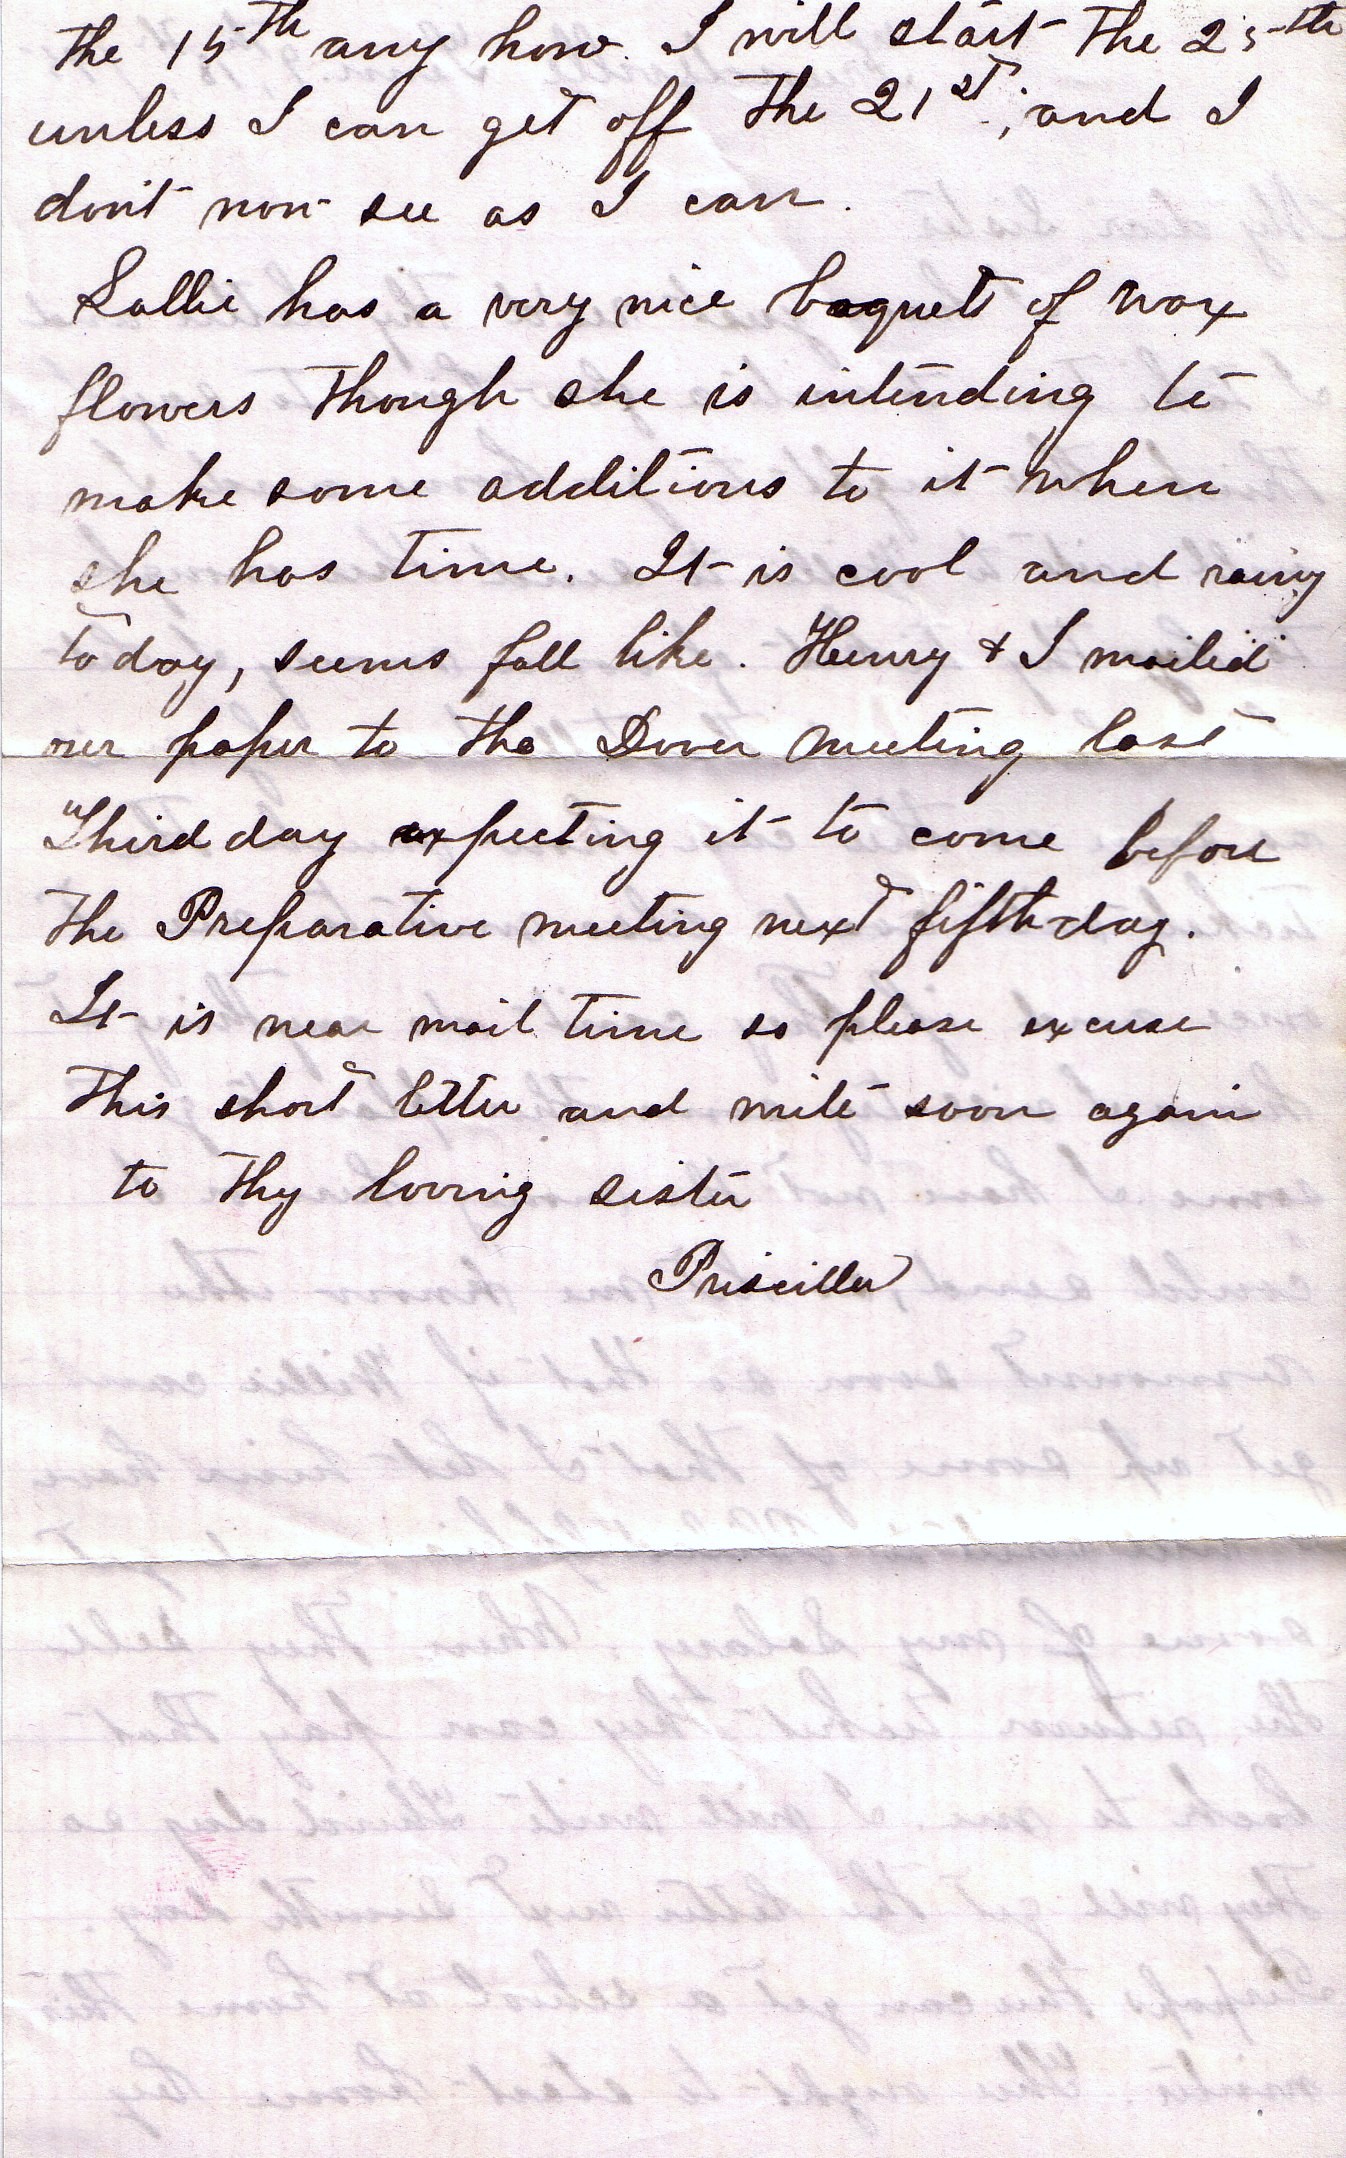 the 15th any how. I will start the 25th
unless I can get off the 21st; and I
don't now see as I can.
Sallie has a very nice boquett of wax
flowers though she is intending to
make some additions to it when
she has time. It is cool and rainy
to day, seems fall like. Henry & I mailed
our paper to the Dover meeting last
Third day expecting it to come before
the Preparative meeting next fifth day.
It is near mail time so please excuse
this short letter and write soon again
to thy loving sister
Priscilla